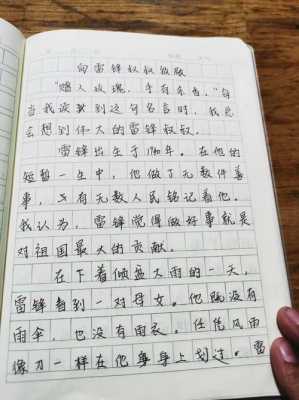 向雷锋叔叔致敬
“赠人玫瑰，手有余香。”每
当我读到这句名言时，我总
会想到伟大的雷锋叔叔。
雷锋出生于1940年。在他的
短暂一生中，他做了无数件善
事，也有无数人民铭记着他。
我认为，雷锋觉得做好事就是
对祖国最大的贡献。
在下着倾盆大雨的一天，
雷锋看到一对母女。他既没有
雨伞，也没有雨衣。任凭风雨
像刀一样在他身上划过。雷